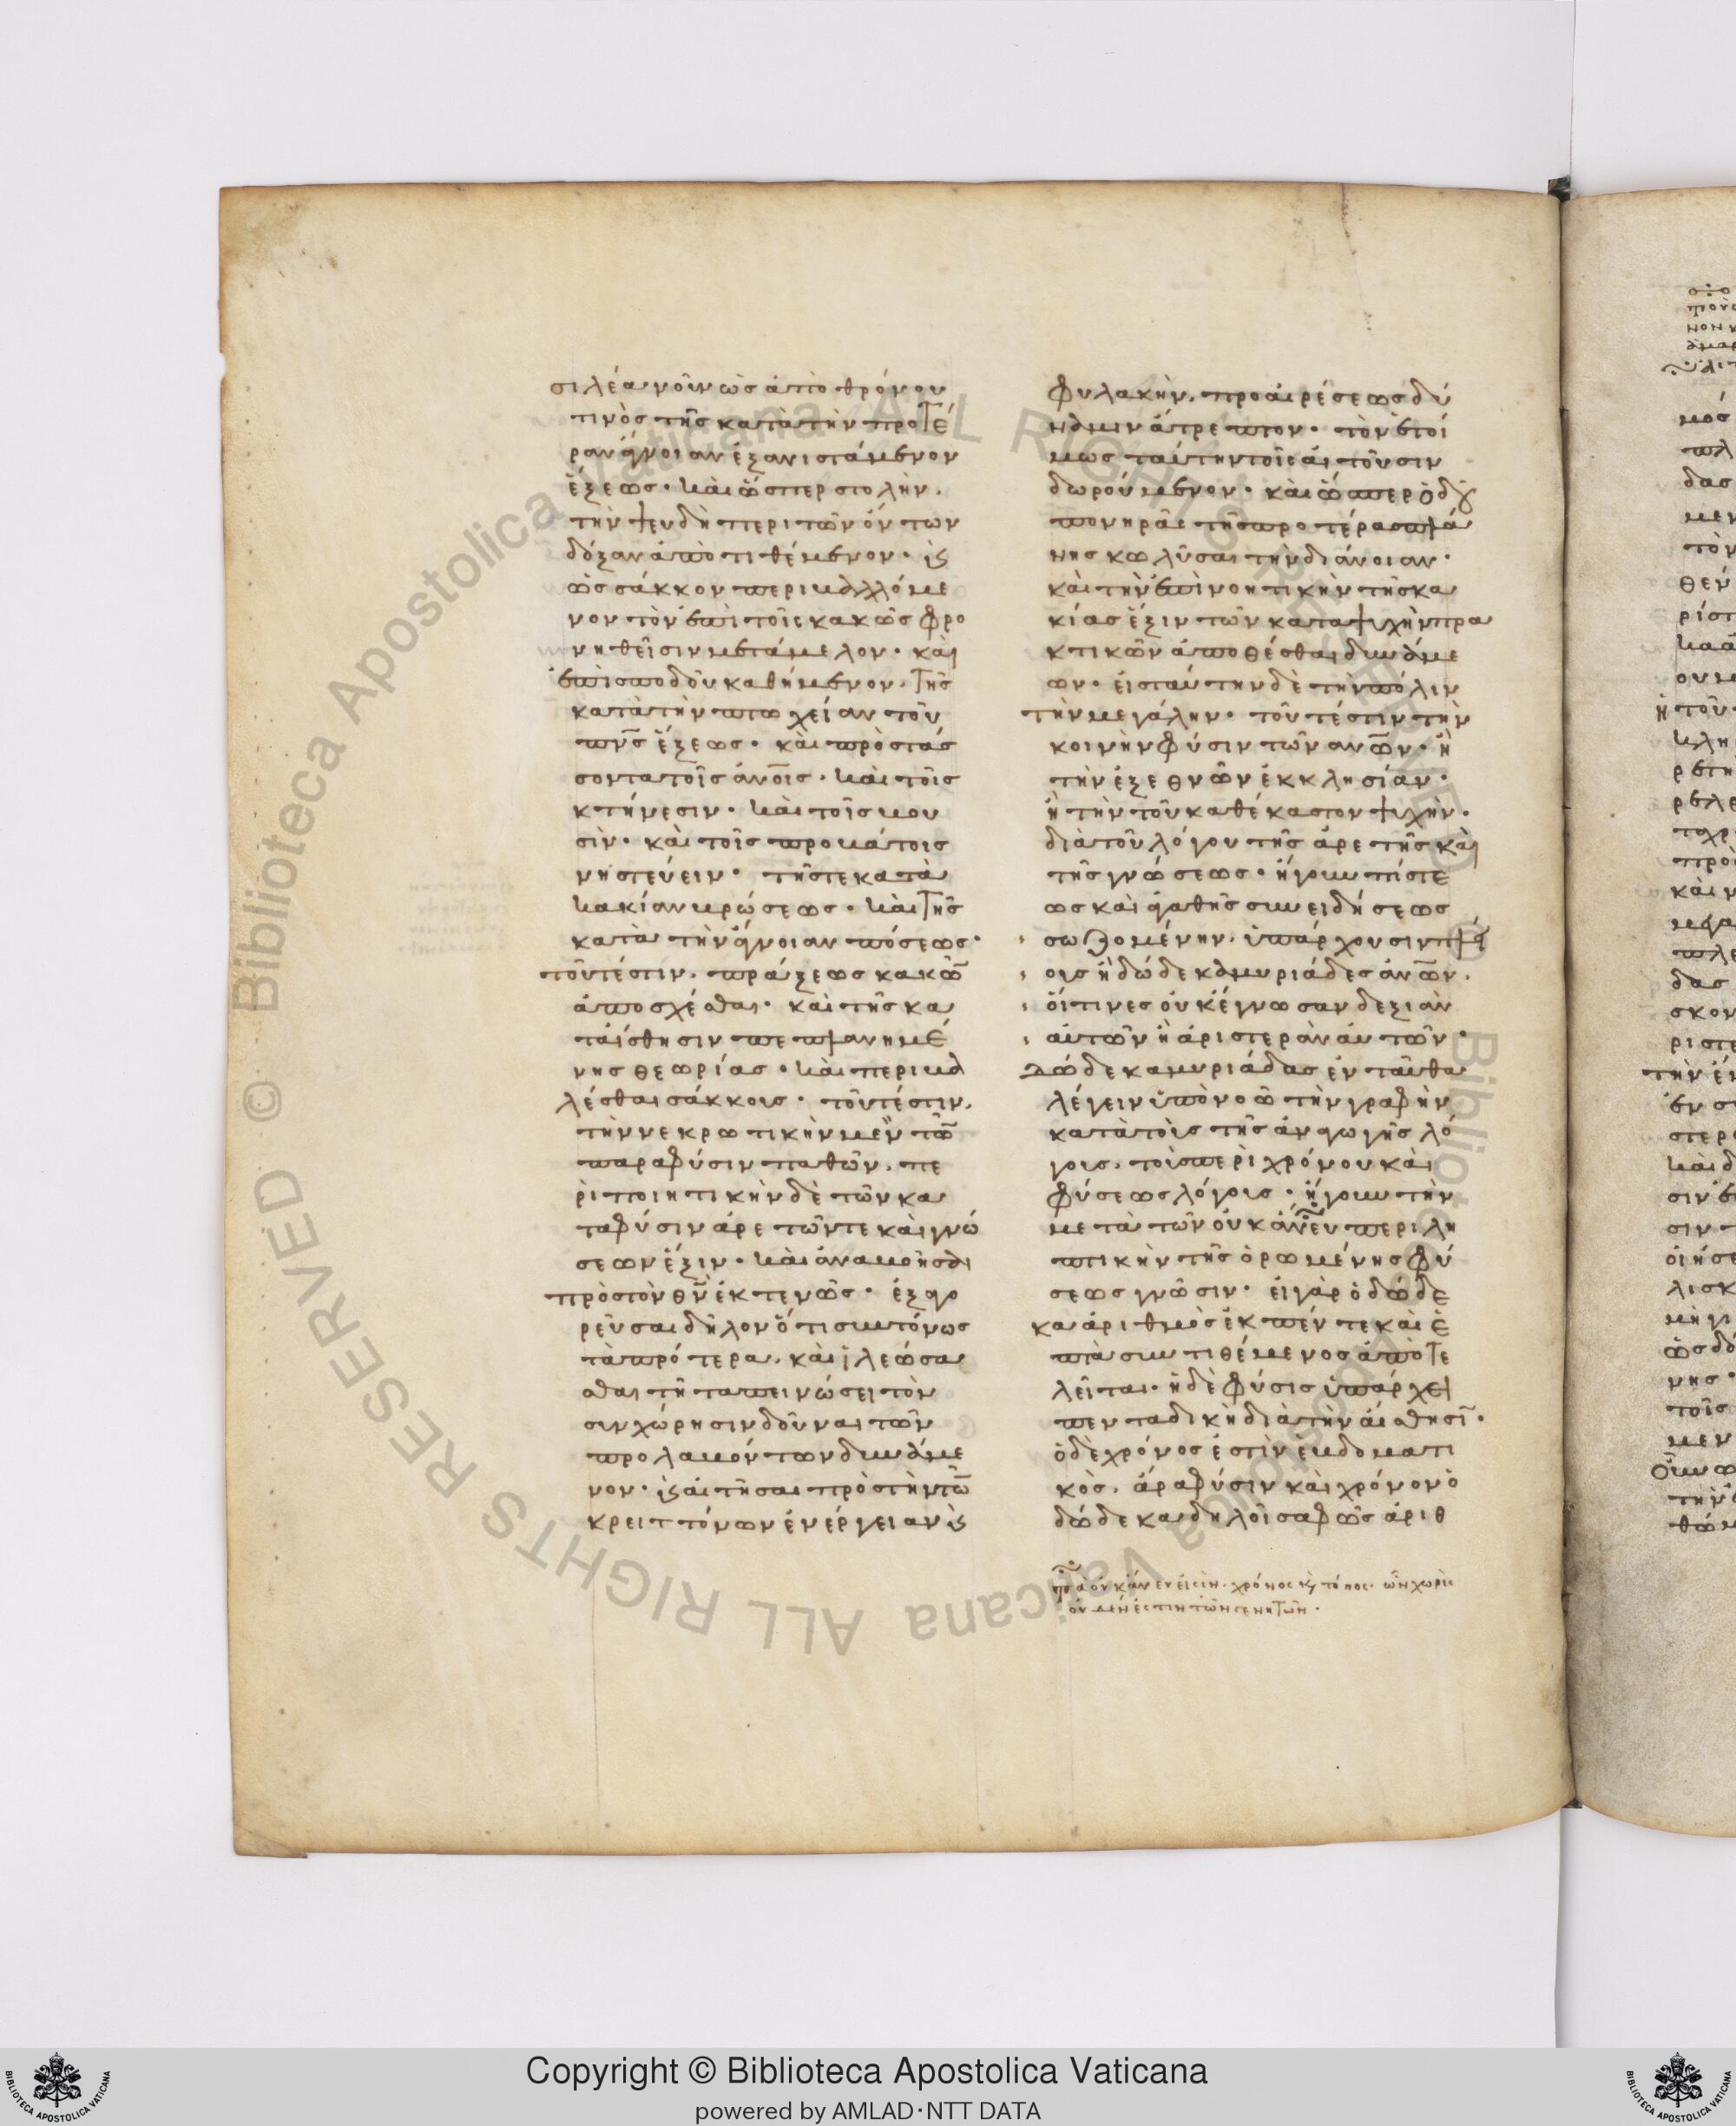 σιλέα νοῦν ὡς ἀπὸ θρόνου
τινὸς τῆς κατὰ τὴν προτέ
ραν ἄγνοιαν ἐξανιστάμενον
ἕξεως· καὶ ὥσπερ στολὴν,
τὴν ψευδῆ περὶ τῶν ὄντων
δόξαν ἀποτιθέμενον· κ(αὶ)
ὡς σάκκον περιβαλλόμε
νον τὸν ἐπὶ τοῖς κακῶς φρο
νηθεῖσιν μετάμελον· καὶ
ἐπὶ σποδοῦ καθήμενον, τῆς
κατὰ τὴν πτωχείαν τοῦ
πν̅ς ἕξεως· καὶ προστάσ
σοντα τοῖς ἀν̅οις· καὶ τοῖς
κτήνεσιν· καὶ τοῖς βου
σὶν· καὶ τοῖς προβάτοις
νηστεύειν· τῆς τε κατὰ
κακίαν βρώσεως· καὶ τῆς
κατὰ τὴν ἄγνοιαν πόσεως·
τουτέστιν, πράξεως κακῶν
ἀποσχέσθαι· καὶ τῆς κα
τ' αἴσθησιν πεπλανημέ
νης θεωρίας· καὶ περιβα
λέσθαι σάκκους· τουτέστιν,
τὴν νεκρωτικὴν μὲν τῶν
παρὰ φύσιν παθῶν, πε
ριποιητικὴν δὲ τῶν κα
τὰ φύσιν ἀρετῶν τε καὶ γνώ
σεων ἕξιν· καὶ ἀναβοῆσαι
πρὸς τὸν θν̅ ἐκτενῶς· ἐξαγο
ρεῦσαι δηλονότι συντόνως
τὰ πρότερα, καὶ ἱλεώσα
σθαι τῇ ταπεινώσει τὸν
συγχώρησιν δοῦναι τῶν
προλαβόντων δυνάμε
νον· κ(αὶ) αἰτῆσαι πρὸς τὴν τῶν
κρειττόνων ἐνέργειαν κ(αὶ)
φυλακὴν, προαιρέσεως δύ
ναμιν ἄτρεπτον· τὸν ἑτοί
μως ταύτην τοῖς αἰτοῦσιν
δωρούμενον· καὶ ὥσπερ ὁδοῦ
πονηρᾶς τῆς προτέρας πλά
νης κωλῦσαι τὴν διάνοιαν·
καὶ τὴν ἐπινοητικὴν τῆς κα
κίας ἕξιν τῶν κατὰ ψυχὴν πρα
κτικῶν ἀποθέσθαι δυνάμε
ων· εἰς ταύτην δὲ τὴν πόλιν
τὴν μεγάλην· τουτέστιν τὴν
κοινὴν φύσιν τῶν ἀν̅ων· ἢ
τὴν ἐξ ἐθνῶν ἐκκλησίαν·
ἢ τὴν τοῦ καθέκαστον ψυχὴν·
διὰ τοῦ λόγου τῆς ἀρετῆς καὶ
τῆς γνώσεως· ἤγουν πίστε
ως καὶ ἀγαθῆς συνειδήσεως
σωζομένην, ὑπάρχουσιν πλεί
ους ἢ δώδεκα μυριάδες ἀν̅ων,
οἵτινες οὐκ ἔγνωσαν δεξιὰν
αὐτῶν ἢ ἀριστερὰν αὐτῶν·
Δώδεκα μυριάδας ἐνταῦθα
λέγειν ὑπονοῶ τὴν γραφὴν
κατὰ τοὺς τῆς ἀναγωγῆς λό
γους, τοὺς περὶ χρόνου καὶ
φύσεως λόγους· ἤγουν τὴν
μετὰ τῶν οὐκ ἄνευ περιλη
πτικὴν τῆς ὁρωμένης φύ
σεως γνῶσιν· εἰ γὰρ ὁ δώδε
κα ἀριθμὸς ἐκ πέντε καὶ ἑ
πτὰ συντιθέμενος ἀποτε
λεῖται· ἡ δὲ φύσις ὑπάρχει
πενταδικὴ διὰ τὴν αἴσθησιν·
ὁ δὲ χρόνος ἐστὶν ἑβδοματι
κὸς, ἄρα φύσιν καὶ χρόνον ὁ
δώδεκα δηλοῖ σαφῶς ἀριθ
τὰ οὐκ ἄνευ εἰσὶν, χρόνος κ(αὶ) τόπος· ὧν χωρὶς
οὐδέν ἐστιν τῶν γενητῶν·
Copyright © Biblioteca Apostolica Vaticana
powered by AMLAD·NTT DATA